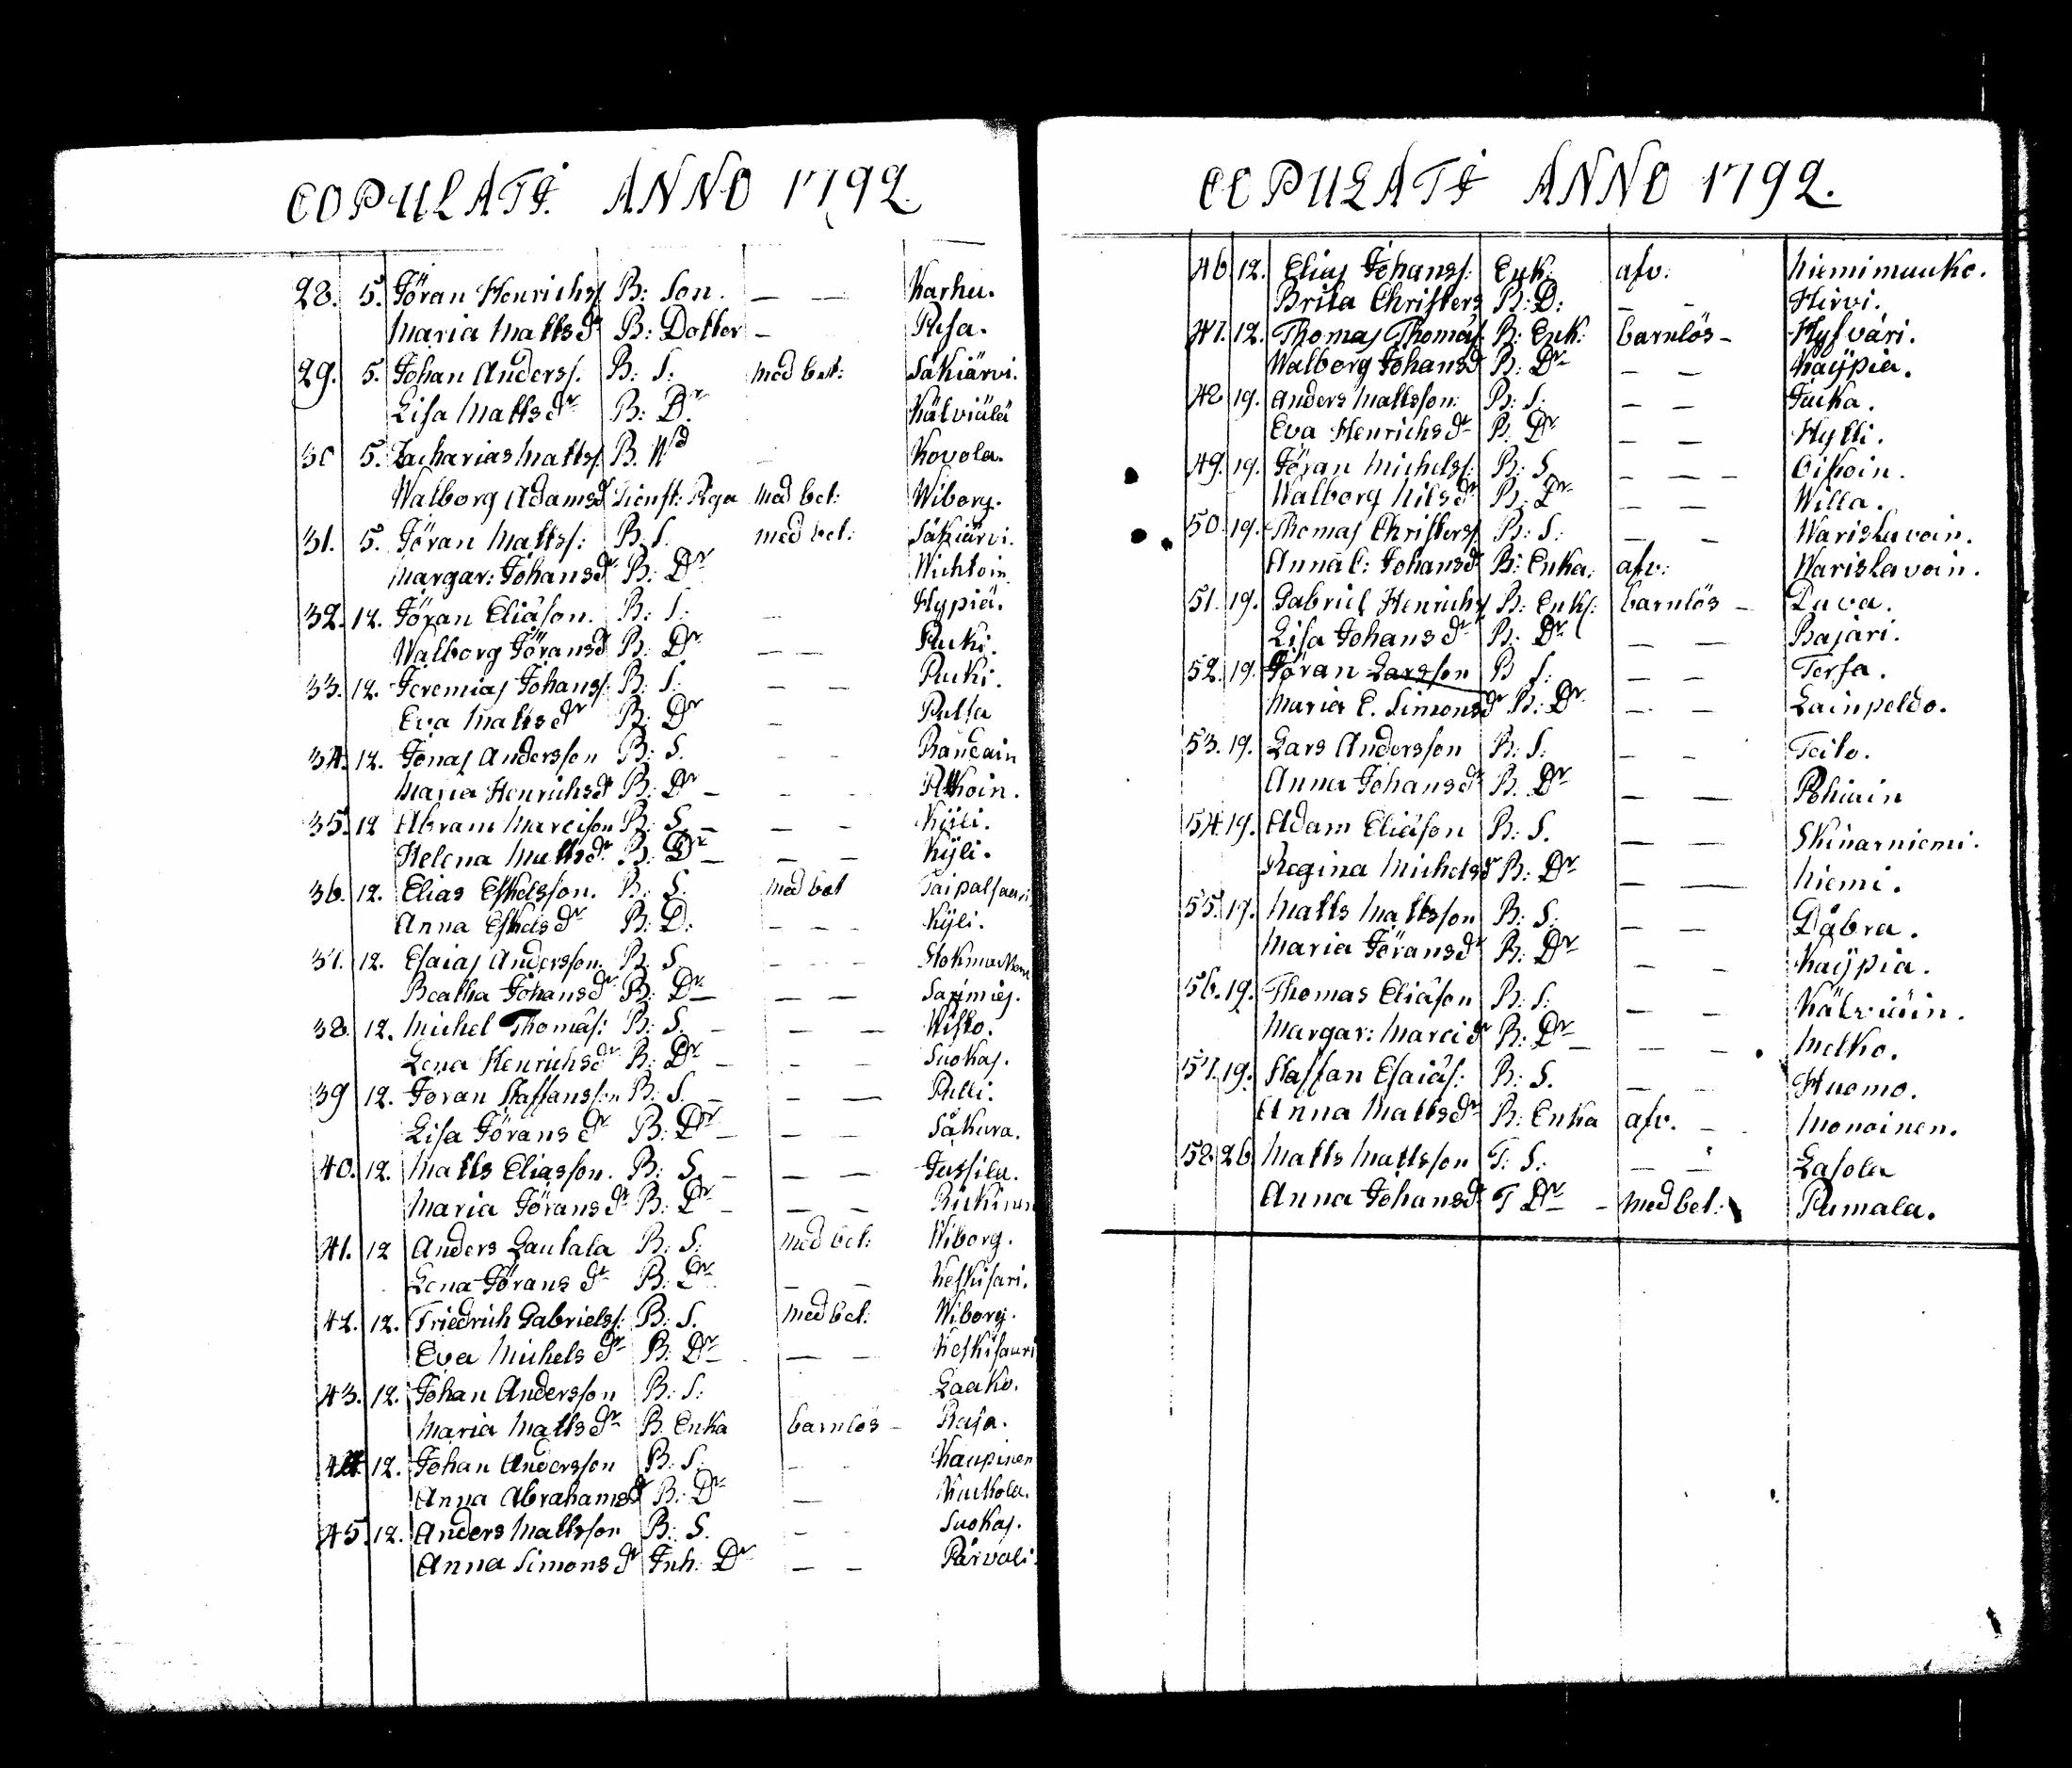 COPULATI ANNO 1792.
28. 5. Jöran Henrichss: B: Son. — — Karhu.
Maria Mattsdr B: Dotter — Pusa.
29. 5. Johan Anderss. B: S: med bet: Säkiärvi.
Lisa Mattsdr B: Dr. Kälviälä
30 5. Zacharias Mattss: B. Kovola.
Walborg Adamsd Tienst: Piga med bet: Wiborg.
31. 5. Jöran Mattss: B. S. med bet: Säkiärvi.
Margar: Johansdr B: Dr Wichtoin
32. 12. Jöran Eliäson. B: S: — Hypiä.
Walborg Jöransd B: Dr — — Pucki.
33. 12. Jeremias Johanss: B: S: — — Pucki.
Eva Mattsdr B: Dr — Pulsa
34. 12. Jonas Andersson B: S. - - Raudain
Maria Henrichsdr B: Dr — - - Pitkoin.
35. 12 Abram Marcison B: S. — — — Kÿli.
Helena Mattsdr B: Dr — — — Kÿli.
36. 12. Elias Eskelsson. B: S. med bet Taipalsaari
Anna Eskelsdr B: D: - - - Kÿli.
37. 12. Esaias Andersson. B. S - - -
Beatha Johansdr B: Dr — — — Sarimies.
38. 12. Michel Thomäs: B: S. - — — Wisko.
Lena Henrichsdr B: Dr — - - Suokas.
39 12. Jöran Staffansson B: S. - - — Pulli.
Lisa Jöransdr B: Dr — — — Säkura.
40. 12. Matts Eliasson. B: S. — — — Jussila.
Maria Jöransdr B: Dr — — —
41. 12 Anders Lautala B: S: med bet: Wiborg.
Lena Jöransdr B: Dr — — Keskisari.
42. 12. Friedrich Gabrielss: B: S. med bet: Wiborg.
Eva Michelsdr B: Dr — — — Keskisaari
43. 12. Johan Andersson B: S: Laako.
Maria Mattsdr B. Enka barnlös - Rasa.
44. 12. Johan Andersson B: S: - - Kaupinen
Anna Abrahamsd B: Dr — Kuckola.
45. 12. Anders Mattsson B: S. - Suokas.
Anna Simonsdr Inh: Dr — — Pärvoli.
COPULATI ANNO 1792.
46. 12. Elias Johanss: Enk: afv: Niemimauko.
Brita Christers B: D: — - Hirvi.
47. 12. Thomas Thomäs B: Enk: barnlös - Hyfväri.
Walborg Johansd B: Dr — — Kaÿpia.
48 19. Anders Mattsson: B: S: — — Jucka.
Eva Henrichsdr B. Dr — — Hytti.
49. 19. Jöran Michelss: B: S - — — Oikoin.
Walborg Nilsdr B: Dr — — Willa.
50. 19. Thomas Christerss B: S: — - Warislavoin.
Anna C: Johansdr B: Enka: afv: Warislavoin.
51. 19. Gabriel Henrichss B: Enks: barnlös - Duva.
Lisa Johansdr B: Dr — — Bajari.
52. 19. Jöran Larsson B S: — — Tersa.
Maria E. Simonsdr B: Dr — - — Lainpeldo.
53. 19. Lars Andersson B: S: — - Teilo.
Anna Johansdr B. Dr — — Pohiain
54. 19. Adam Eliäson B: S. — — Skinarniemi.
Regina Michelsdr B: Dr — — Niemi.
55. 19. Matts Mattsson B: S: — — Dåbra.
Maria Jöransdr B: Dr — - Kaÿpia.
56. 19. Thomas Eliäson B: S: — — Kälviäin.
Margar: Marcidr B: Dr — — - Melko.
57. 19. Staffan Esaiäs: B: S. — — Huomo.
Anna Mattsdr B: Enka afv. - Monoinen.
58. 26 Matts Mattsson T: S: — — Lasola
Anna Johansdr T Dr - med bet: Pumala.